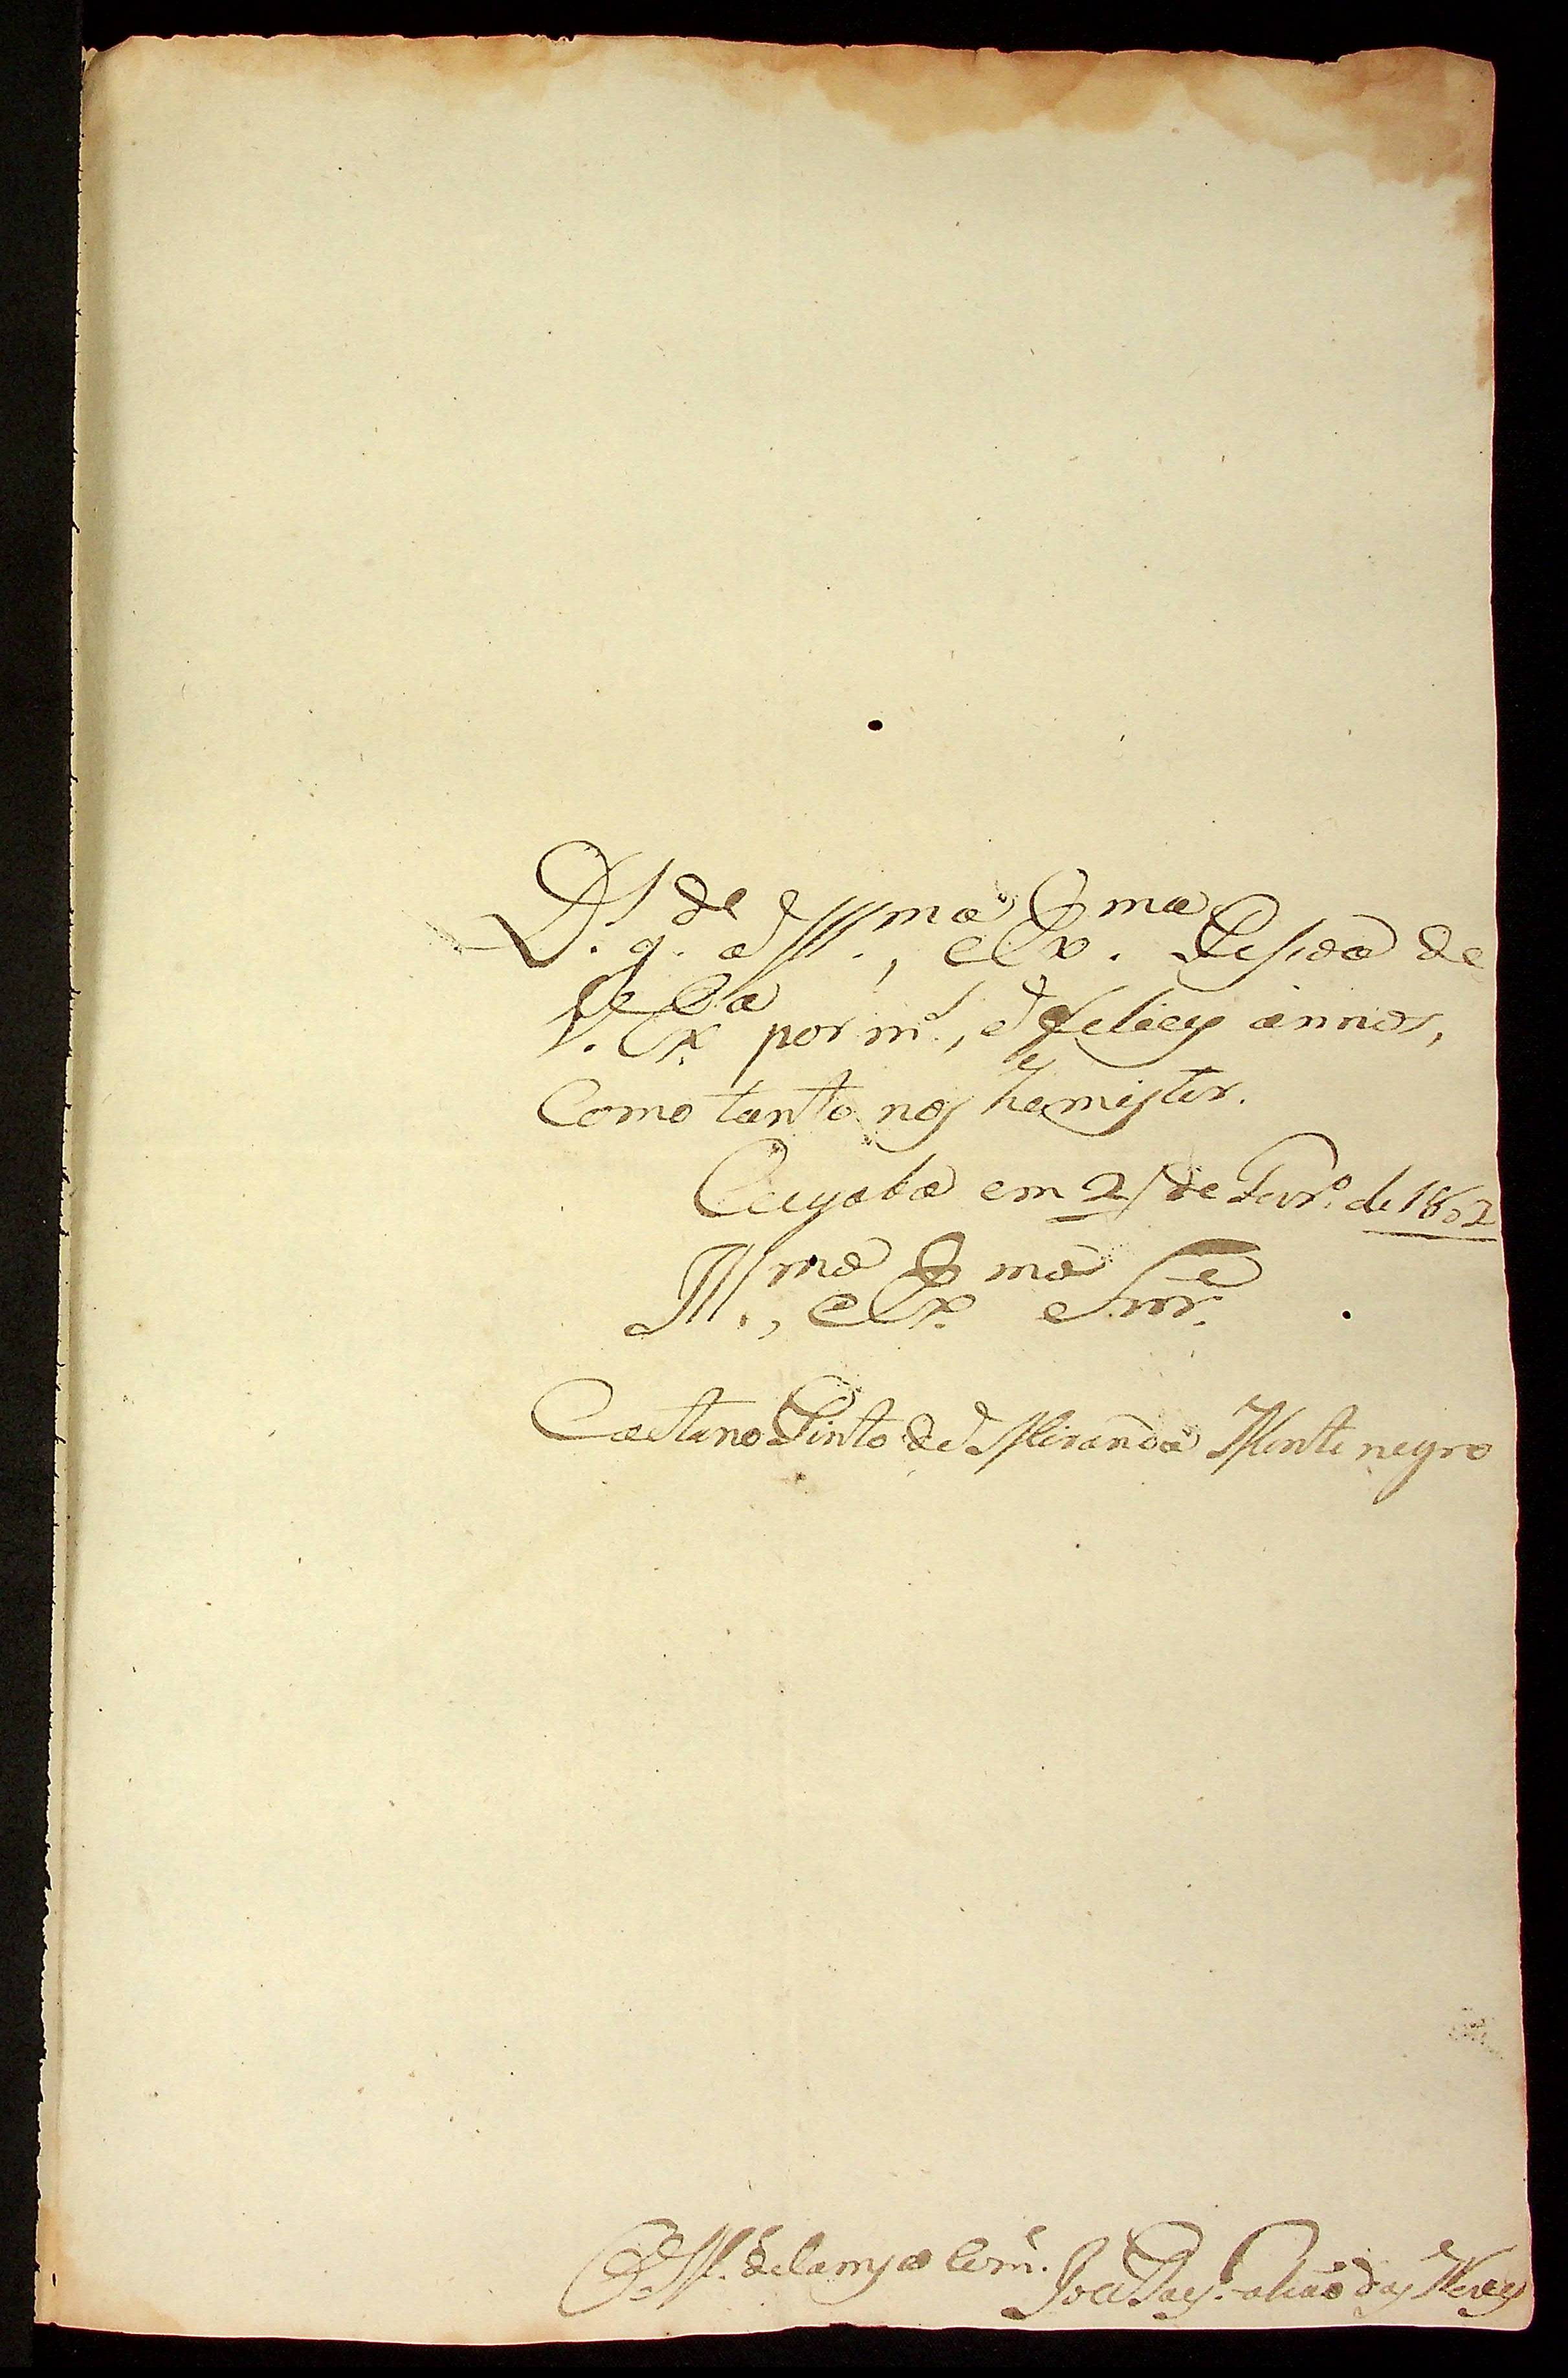 D.s g.de a Ill.ma, e Ex.ma Pessoa de
V. Ex.a por m.s, e felices annos,
Como tanto nos he mister.
Cuyabá em 21 de Fevr.o de 1802
Ill.mo, e Ex.mo Snr.e
Caetano Pinto de Miranda Montenegro
O M.e de Campo Com.e José Paes Falcão das Neves